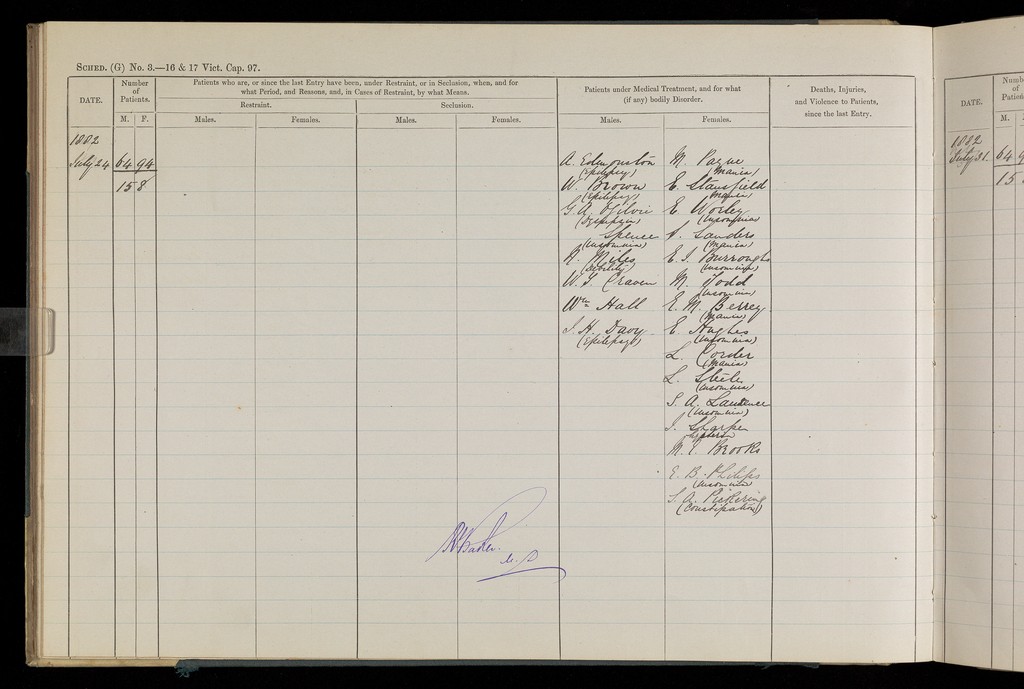 SCHED. (G) No. 3.—16 & 17 Vict. Cap. 97.
DATE.
Number of Patients.
M. F.
Patients who are, or since the last Entry have been, under Restraint, or in Seclusion, when, and for
what Period, and Reasons, and, in Cases of Restraint, by what Means.
Restraint.
Seclusion.
Males.
Females.
Males.
Females.
Patients under Medical Treatment, and for what
(if any) bodily Disorder.
Males.
Females.
Deaths, Injuries,
and Violence to Patients,
since the last Entry.
1882
July 24 64 94
158
A. Edmonston
(Epilepsy)
W. Brown
(Epilepsy)
G. A. Ogilvie
Spence
(Insomnia)
R. Miles
(Debility)
W. S. Craven
Wm Hall
J. H. Davy
(Epilepsy)
M. Payne
(Mania)
E. Stansfield
(Mania)
E. Worley
(Insomnia)
A. Sanders
(Mania)
E. J. Burroughs
(Insomnia)
M. Todd
(Insomnia)
E. M. Berrey
(Mania)
E. Hughes
(Insomnia)
L. Corder
(Mania)
L. Steele
(Insomnia)
S. A. Laurence
(Insomnia)
J. Sharpe
M. T. Brooks
E. B. Philips
(Insomnia)
S. A. Pickering
(Constipation)
Baker. M.D
DATE.
M.
1882
July 31. 64